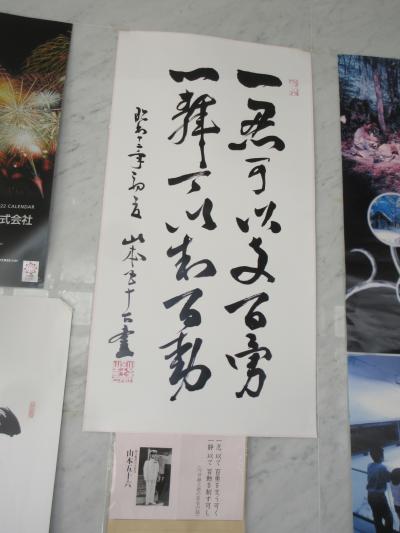 一忍可以支百勇
一静可以制百動
昭和十二年初夏 山本五十六書
一忍 以て 百勇を支う可く
一静 以て 百動を制す可し
山本五十六
22 CALENDAR
式会社